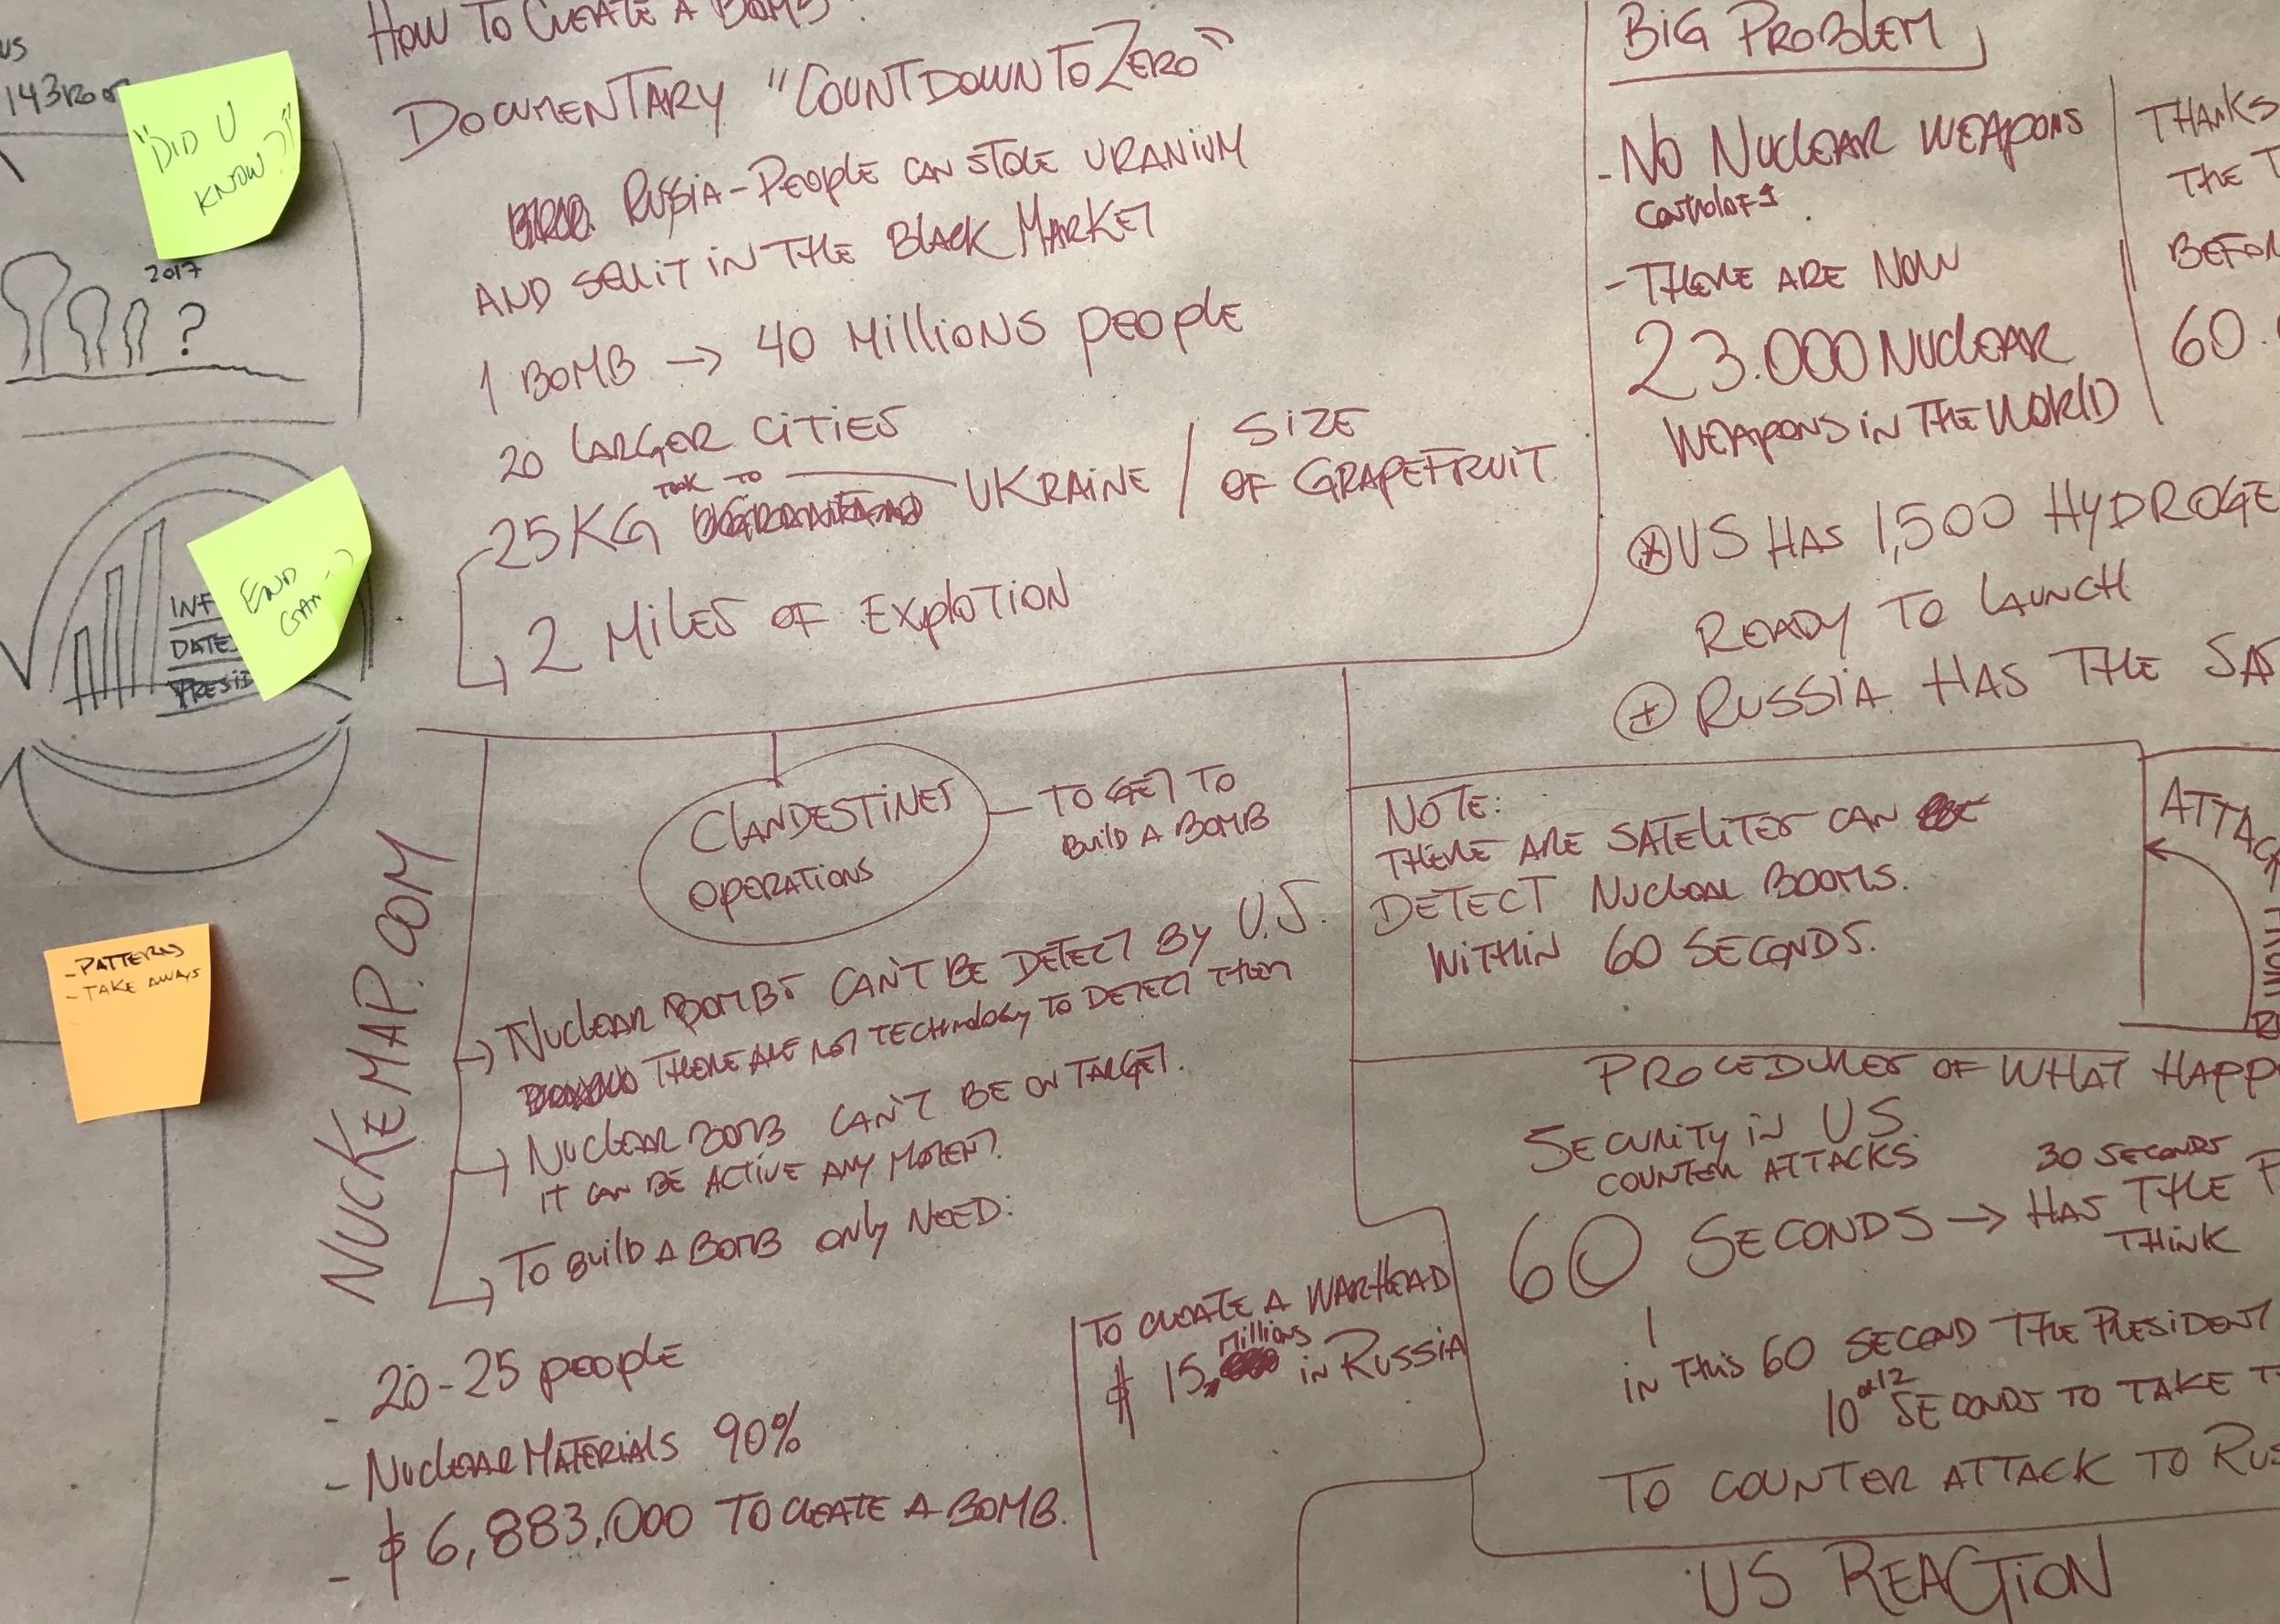 US
143
"DID U
KNOW?"
2017
?
INF
DATE
PRESID
END
GAM
- PATTERNS
- TAKE AWAYS
NUCKEMAP.COM
HOW TO CREATE A BOMB
DOCUMENTARY "COUNTDOWN TO ZERO"
RUSSIA - PEOPLE CAN STOLE URANIUM
AND SELL IT IN THE BLACK MARKET
1 BOMB → 40 MILLIONS PEOPLE
20 LARGER CITIES
25 KG TOOK TO UKRAINE / SIZE
OF GRAPEFRUIT
2 MILES OF EXPLOTION
CLANDESTINES
OPERATIONS
TO GET TO
BUILD A BOMB
NUCLEAR BOMBS CAN'T BE DETECT BY U.S.
THERE ARE NOT TECHNOLOGY TO DETECT THEM
NUCLEAR BOMB CAN'T BE ON TARGET.
IT CAN BE ACTIVE ANY MOMENT.
TO BUILD A BOMB ONLY NEED:
- 20-25 PEOPLE
- NUCLEAR MATERIALS 90%
- $ 6,883,000 TO CREATE A BOMB.
TO CREATE A WARHEAD
$ 15, MILLIONS IN RUSSIA
BIG PROBLEM
- NO NUCLEAR WEAPONS
- THERE ARE NOW
23.000 NUCLEAR
WEAPONS IN THE WORLD
THANKS
THE T
BEFOR
60.
US HAS 1,500 HYDROGE
READY TO LAUNCH
RUSSIA HAS THE SA
NOTE:
THERE ARE SATELITES CAN
DETECT NUCLEAR BOOMS.
WITHIN 60 SECONDS.
ATTACK FRONT
PROCEDURES OF WHAT HAPP
SECURITY IN US.
COUNTER ATTACKS
60 SECONDS → 30 SECONDS
HAS THE P
THINK
IN THIS 60 SECOND THE PRESIDENT
10 OR 12 SECONDS TO TAKE T
TO COUNTER ATTACK TO RUS
US REACTION